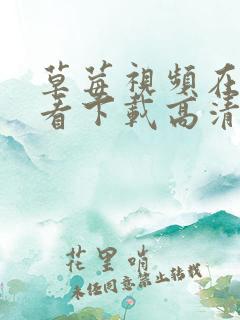 草莓視頻在
看下載高清
花里哨
未经同意禁止转载